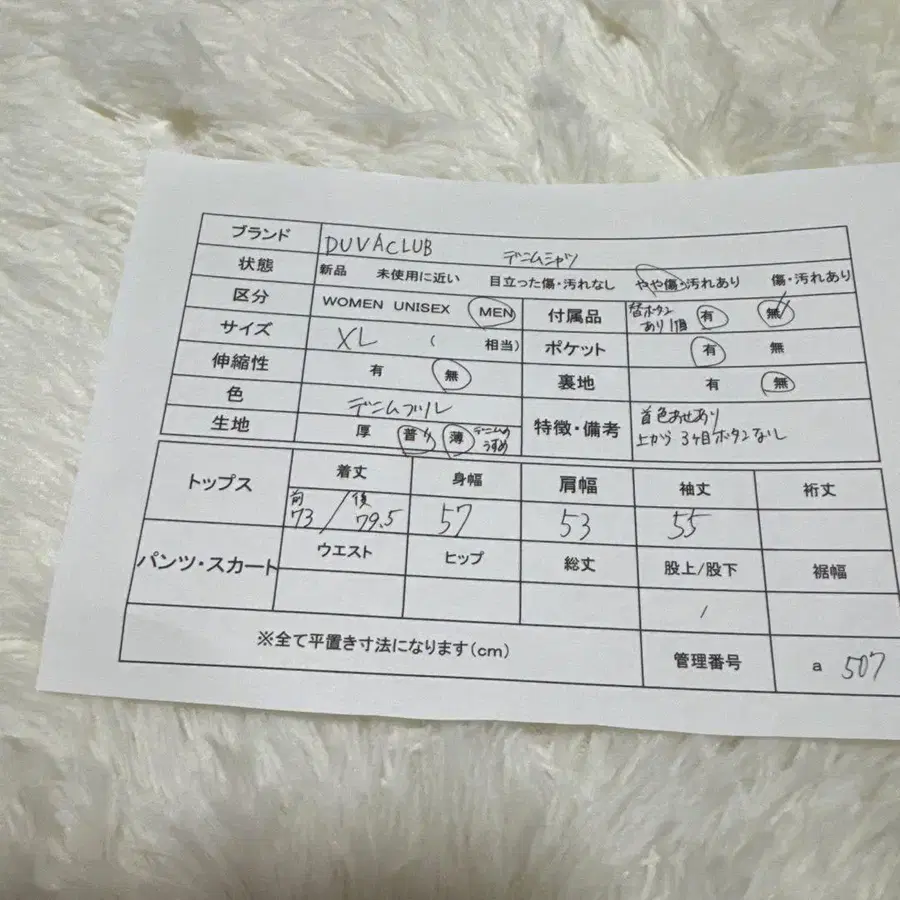 ブランド DUVACLUB デニムシャツ
状態 新品 未使用に近い 目立った傷・汚れなし やや傷・汚れあり 傷・汚れあり
区分 WOMEN UNISEX MEN 付属品 替ボタンあり1個 有 無
サイズ XL ( 相当) ポケット 有 無
伸縮性 有 無 裏地 有 無
色 デニムブルー 特徴・備考 首色あせあり
生地 厚 普 薄 デニムのうすめ 上から3ヶ目ボタンなし
トップス 着丈 身幅 肩幅 袖丈 裄丈
前73/後79.5 57 53 55
パンツ・スカート ウエスト ヒップ 総丈 股上/股下 裾幅
/
※全て平置き寸法になります(cm) 管理番号 a 507